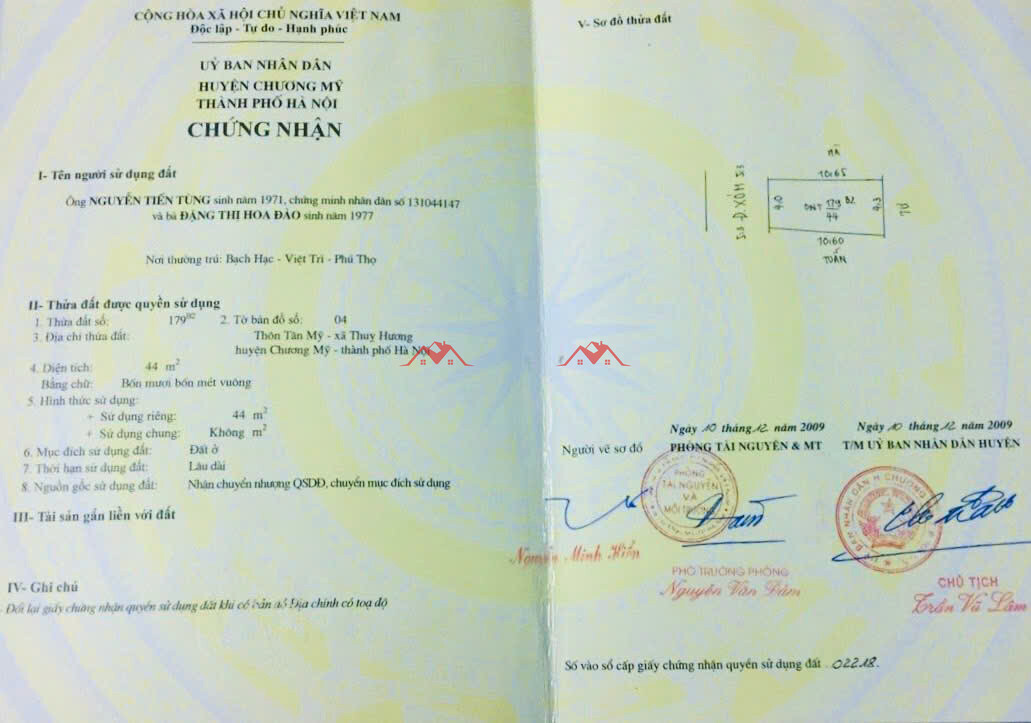 CỘNG HÒA XÃ HỘI CHỦ NGHĨA VIỆT NAM
Độc lập - Tự do - Hạnh phúc
UỶ BAN NHÂN DÂN
HUYỆN CHƯƠNG MỸ
THÀNH PHỐ HÀ NỘI
CHỨNG NHẬN
I- Tên người sử dụng đất
Ông NGUYỄN TIẾN TÙNG sinh năm 1971, chứng minh nhân dân số 131044147
và bà ĐẶNG THỊ HOA ĐÀO sinh năm 1977
Nơi thường trú: Bạch Hạc - Việt Trì - Phú Thọ
II- Thửa đất được quyền sử dụng
1. Thửa đất số: 179B2 2. Tờ bản đồ số: 04
3. Địa chỉ thửa đất: Thôn Tân Mỹ - xã Thuỵ Hương
huyện Chương Mỹ - thành phố Hà Nội
4. Diện tích: 44 m2
Bằng chữ: Bốn mươi bốn mét vuông
5. Hình thức sử dụng:
+ Sử dụng riêng: 44 m2
+ Sử dụng chung: Không m2
6. Mục đích sử dụng đất: Đất ở
7. Thời hạn sử dụng đất: Lâu dài
8. Nguồn gốc sử dụng đất: Nhận chuyển nhượng QSDĐ, chuyển mục đích sử dụng
III- Tài sản gắn liền với đất
IV- Ghi chú
- Đổi lại giấy chứng nhận quyền sử dụng đất khi có bản đồ Địa chính có toạ độ
V- Sơ đồ thửa đất
10.65
Đ. XÓM
4.0
ONT 179 B2
44
4.3
10.60
TUẤN
Ngày 10 tháng 12 năm 2009
Ngày 10 tháng 12 năm 2009
Người vẽ sơ đồ
PHÒNG TÀI NGUYÊN & MT
T/M UỶ BAN NHÂN DÂN HUYỆN
PHÒNG
TÀI NGUYÊN
VÀ
MÔI TRƯỜNG
Nguyễn Minh Hiển
PHÓ TRƯỞNG PHÒNG
Nguyễn Văn Đảm
CHỦ TỊCH
Trần Vũ Lâm
Số vào sổ cấp giấy chứng nhận quyền sử dụng đất 02218.